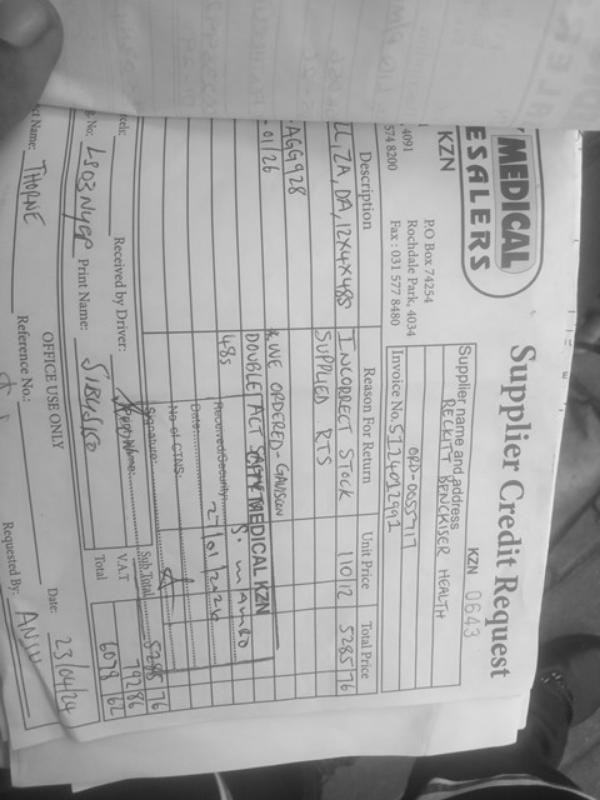 MEDICAL
ESALERS
KZN
Supplier Credit Request
KZN 0643
P.O Box 74254
4091 Rochdale Park, 4034
574 8200 Fax : 031 577 8480
Supplier name and address
RECKITT BENCKISER HEALTH
ORD-0055717
Invoice No. 5124012991
Description Reason For Return Unit Price Total Price
ZA, DA, 12X4X48S INCORRECT STOCK 110 12 5285 76
SUPPLIED RTS
AGG928
01/26 WE ORDERED - GAVISCON
DOUBLE ACT
48s
MEDICAL KZN
Received Security:
Date: 27/01/2024
No of CTNS:
Signature:
Sub Total 5285 76
V.A.T 792 86
Total 6078 62
Received by Driver:
No: L803NYGP Print Name: SIBUSISO
OFFICE USE ONLY
Date: 23/04/24
Name: THORNE Reference No.: Requested By: